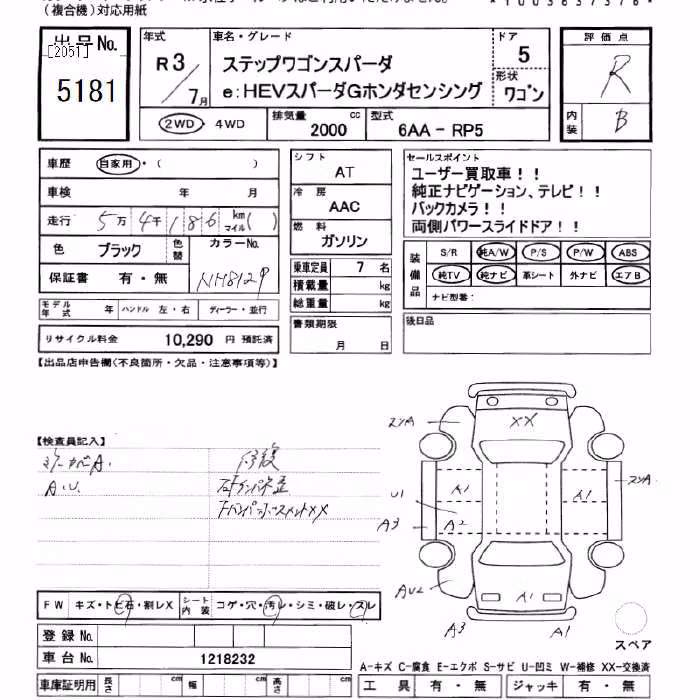 (複合機)対応用紙
出品No.
[2051]
5181
年式
R3/7月
車名・グレード
ステップワゴンスパーダ
e:HEVスパーダGホンダセンシング
ドア
5
形状
ワゴン
2WD・4WD
排気量
2000 cc
型式
6AA-RP5
評価点
R
内装
B
車歴 自家用・( )
車検 年 月
走行 5万4千186 km マイル( )
色 ブラック 色替
カラーNo.
保証書 有・無
モデル年式 年 ハンドル 左・右 ディーラー・並行
リサイクル料金 10,290 円 預託済
シフト
AT
冷房
AAC
燃料
ガソリン
乗車定員 7 名
積載量 kg
総重量 kg
書類期限
月 日
セールスポイント
ユーザー買取車!!
純正ナビゲーション、テレビ!!
バックカメラ!!
両側パワースライドドア!!
装備品
S/R 純A/W P/S P/W ABS
純TV 純ナビ 革シート 外ナビ エアB
ナビ型番:
後日品
【出品店申告欄(不良箇所・欠品・注意事項等)】
【検査員記入】
A.U.
修復
XX
A1
A1
U1
A3
A2
AU2
A1
A3
A1
スペア
FW キズ・トビ石・割レX
シート内装 コゲ・穴・汚レ・シミ・破レ・スレ
登録No.
車台No. 1218232
車庫証明用 長さ cm 幅 cm 高さ cm
A-キズ C-腐食 E-エクボ S-サビ U-凹ミ W-補修 XX-交換済
工具 有・無 ジャッキ 有・無